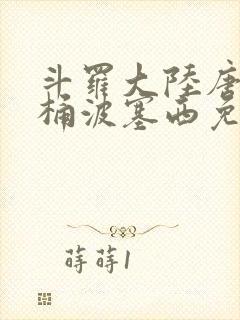 斗羅大陸唐
桶波塞西免
蒔蒔1